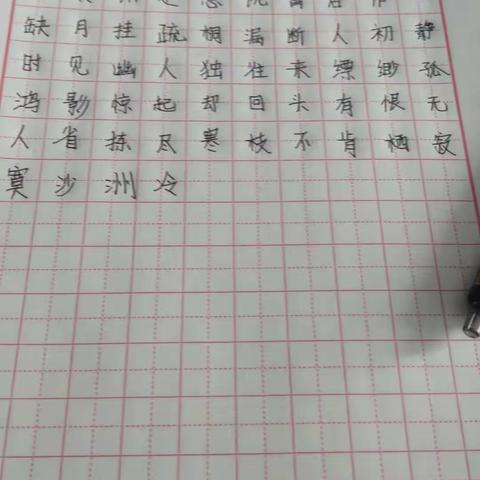 缺月挂疏桐漏断人初静
时见幽人独往来缥缈孤
鸿影惊起却回头有恨无
人省拣尽寒枝不肯栖寂
寞沙洲冷